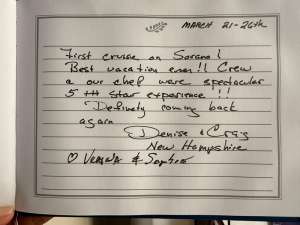 MARCH 21-26th
First cruise on Sorano!
Best vacation ever!! Crew
a our chef were spectacular
5 +++ star experience!!
Definetly coming back
again
Denise & Craig
New Hampshire
♡ & Sophie